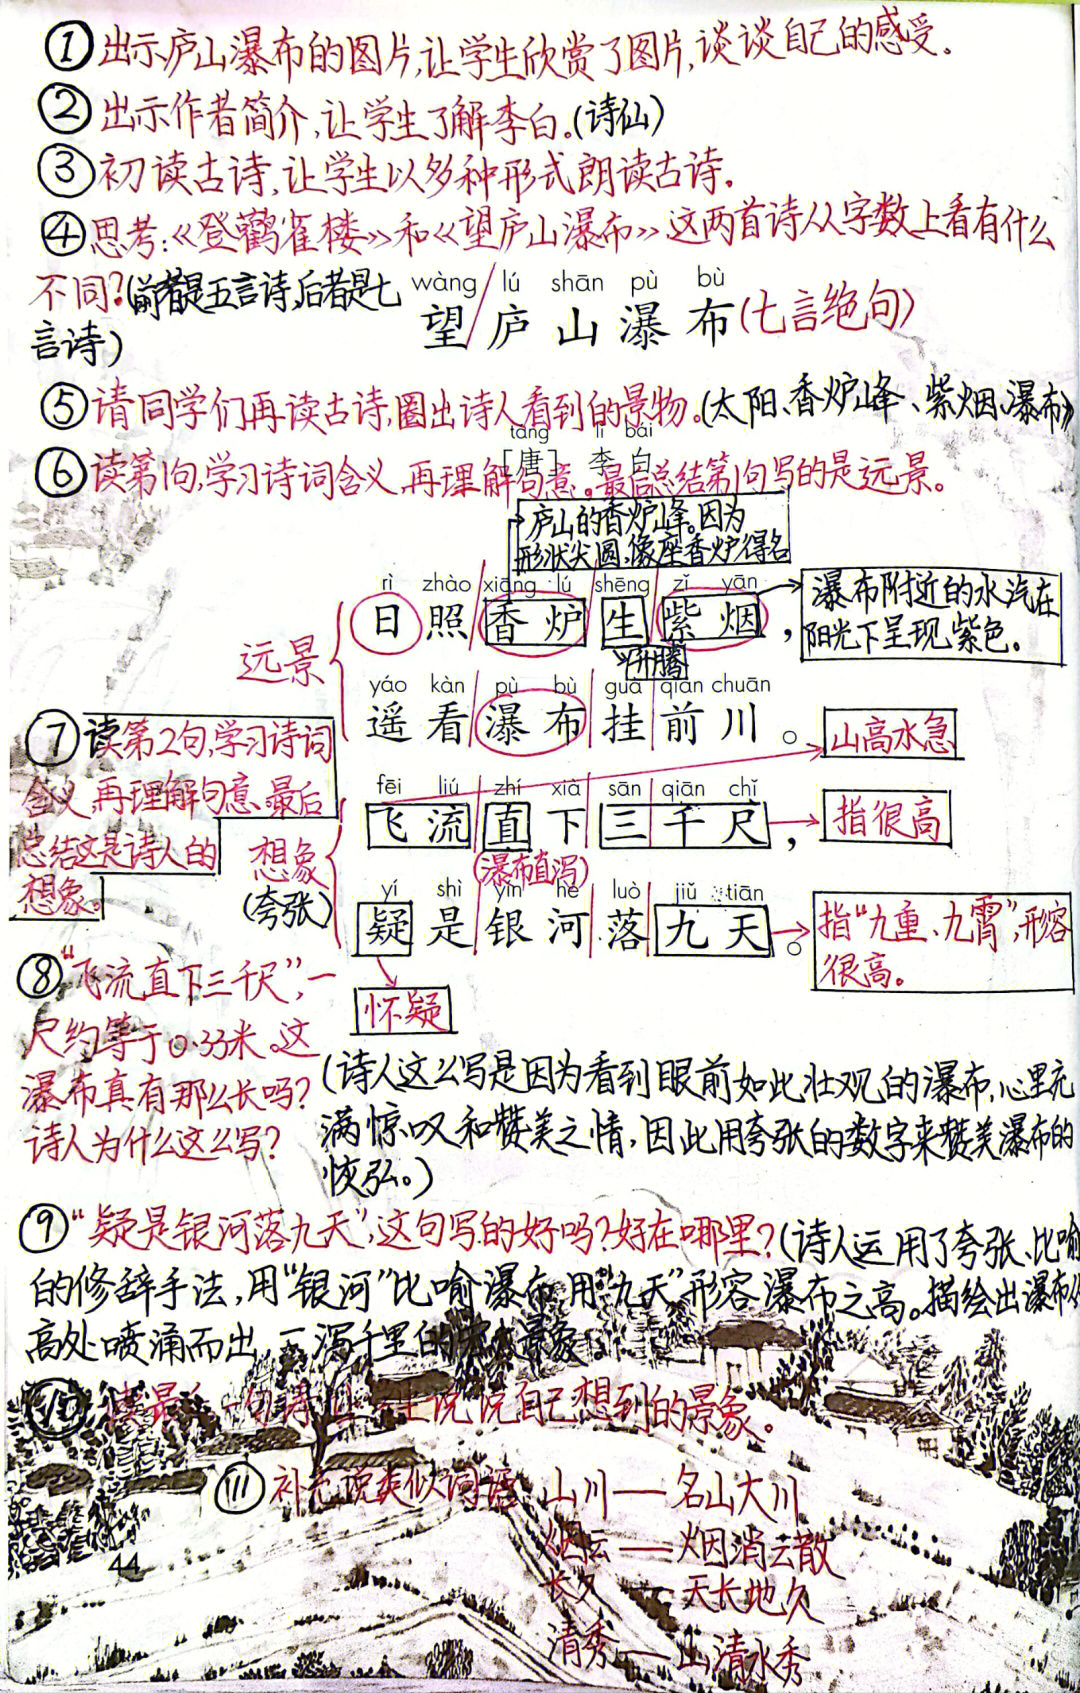 ①出示庐山瀑布的图片,让学生欣赏了图片,谈谈自己的感受。
②出示作者简介,让学生了解李白。(诗仙)
③初读古诗,让学生以多种形式朗读古诗。
④思考:《登鹳雀楼》和《望庐山瀑布》这两首诗从字数上看有什么
不同?(前者是五言诗,后者是七
言诗)
wàng lú shān pù bù
望/庐山瀑布(七言绝句)
⑤请同学们再读古诗,圈出诗人看到的景物。(太阳、香炉峰、紫烟、瀑布)
táng lǐ bái
[唐] 李白
⑥读第1句,学习诗词含义,再理解句意。最后总结第1句写的是远景。
庐山的香炉峰。因为
形状尖圆,像座香炉得名
rì zhào xiāng lú shēng zǐ yān
日照香炉生紫烟,
升腾
瀑布附近的水汽在
阳光下呈现紫色。
远景
yáo kàn pù bù guà qián chuān
遥看瀑布挂前川。
山高水急
⑦读第2句,学习诗词
含义,再理解句意,最后
总结这是诗人的
想象。
fēi liú zhí xià sān qiān chǐ
飞流直下三千尺,
指很高
(瀑布直泻)
想象
(夸张)
yí shì yín hé luò jiǔ tiān
疑是银河落九天。
指“九重、九霄”,形容
很高。
怀疑
⑧“飞流直下三千尺”,一
尺约等于0.33米。这
瀑布真有那么长吗?
诗人为什么这么写?
(诗人这么写是因为看到眼前如此壮观的瀑布,心里充
满惊叹和赞美之情,因此用夸张的数字来赞美瀑布的
恢弘。)
⑨“疑是银河落九天”,这句写的好吗?好在哪里?(诗人运用了夸张、比喻
的修辞手法,用“银河”比喻瀑布,用“九天”形容瀑布之高。描绘出瀑布从
高处喷涌而出,一泻千里的景象
⑩读最后一句诗,说说自己想到的景象。
⑪补充说类似词语 山川——名山大川
烟云——烟消云散
长久——天长地久
清秀——山清水秀
44